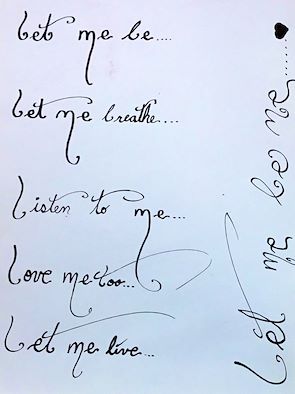 Let me be....
Let me breathe....
Listen to me...
Love me too...
Let me live...
Let me be me......